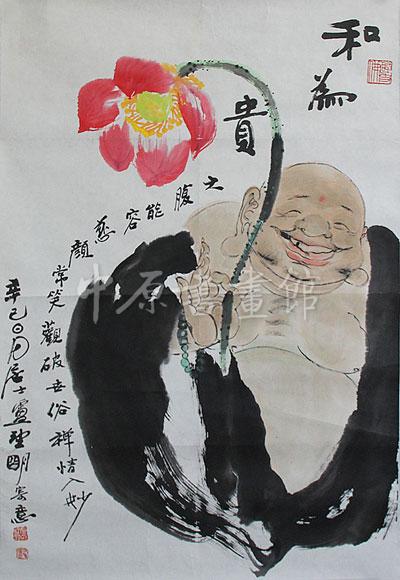 和為貴
大腹能容慈顏
常笑觀破世俗禪情入妙
辛巳日月居士盧明寫意
中原畫館